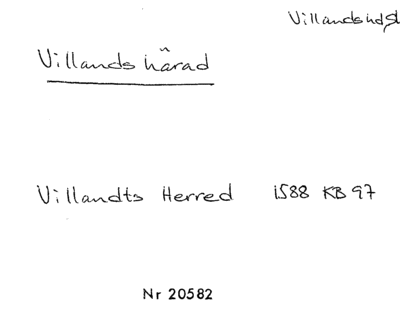 Villands hdSk
Villands härad
Villandts Herred 1588 KB 97
Nr 20582